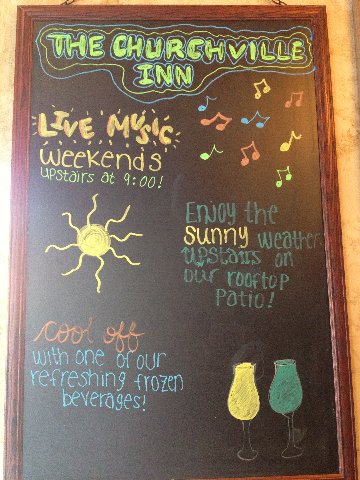 THE CHURCHVILLE
INN
LIVE MUSIC
weekends
upstairs at 9:00!
Enjoy the
sunny weather
upstairs on
our rooftop
Patio!
cool off
with one of our
refreshing frozen
beverages!